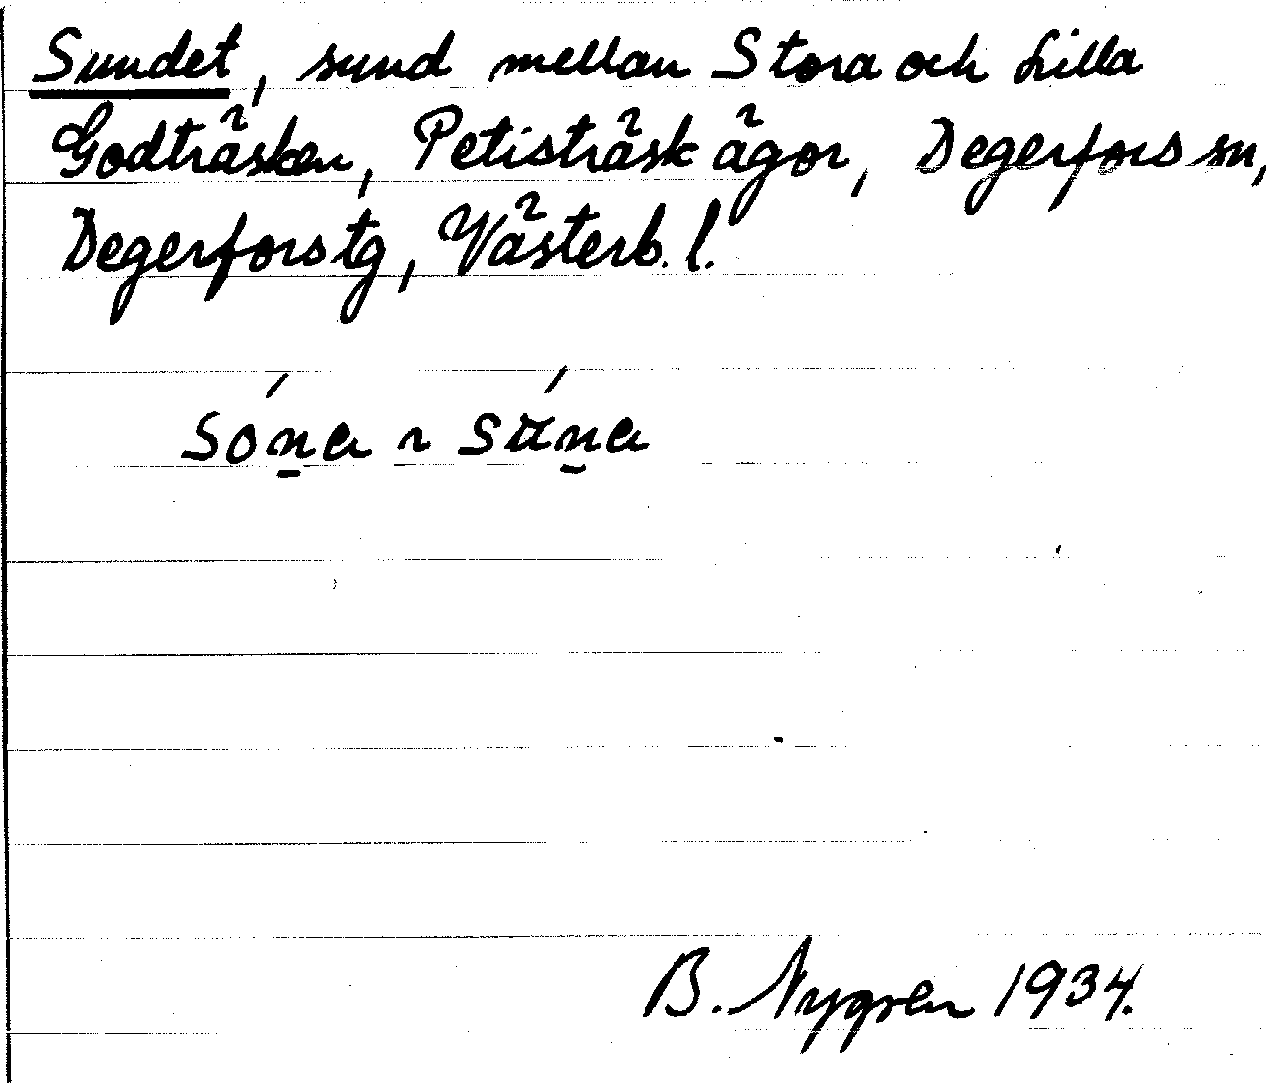 Sundet, sund mellan Stora och Lilla
Godträsken, Petisträsk ägor, Degerfors sn,
Degerfors tg, Västerb. l.
B. Nygren 1934.